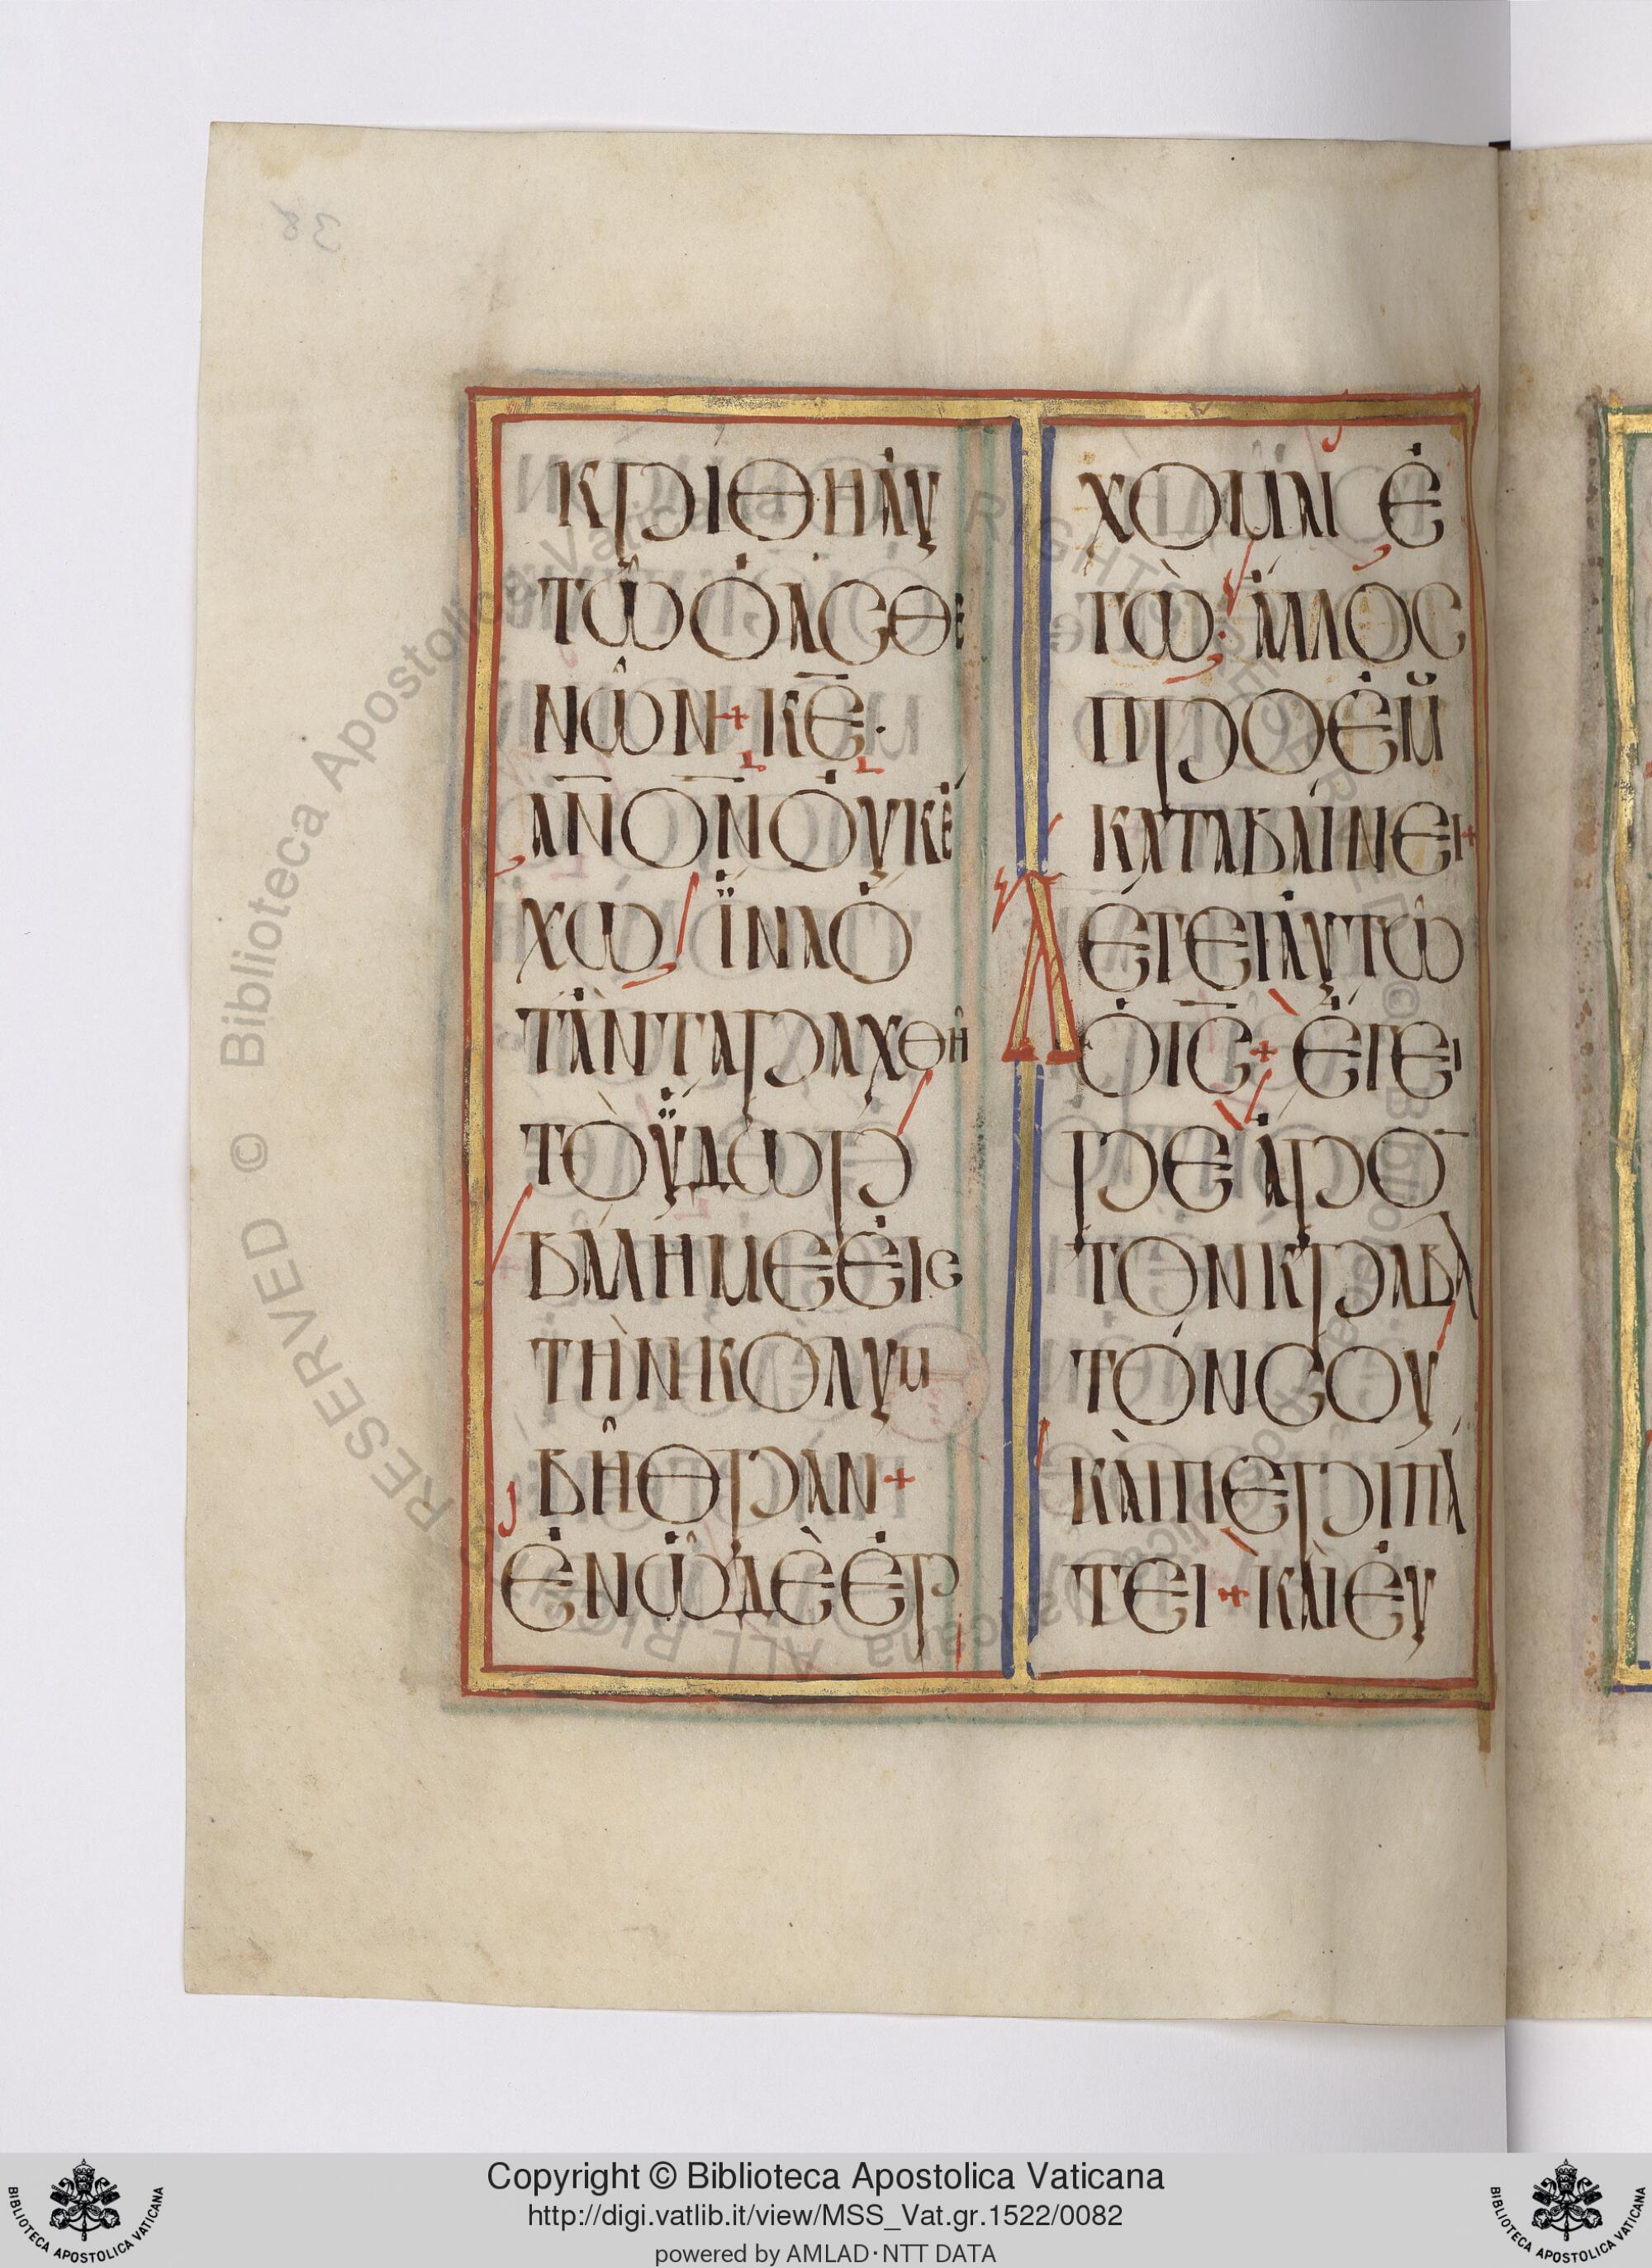 ΚΡΙΘΗ ΑΥ
ΤΩ Ο ΑϹΘΕ
ΝΩΝ + ΚΕ ·
ΑΝΟΝ ΟΥΚ Ε
ΧΩ ΙΝΑ Ο
ΤΑΝ ΤΑΡΑΧΘΗ
ΤΟ ΥΔΩΡ
ΒΑΛΗ ΜΕ ΕΙϹ
ΤΗΝ ΚΟΛΥΜ
ΒΗΘΡΑΝ +
ΕΝ Ω ΔΕ ΕΡ
ΧΟΜΑΙ Ε
ΓΩ ΑΛΛΟϹ
ΠΡΟ ΕΜΟΥ
ΚΑΤΑΒΑΙΝΕΙ +
ΛΕΓΕΙ ΑΥΤΩ
Ο ΙϹ + ΕΓΕΙ
ΡΕ ΑΡΟ
ΤΟΝ ΚΡΑΒΑ
ΤΟΝ ϹΟΥ
ΚΑΙ ΠΕΡΙΠΑ
ΤΕΙ + ΚΑΙ ΕΥ
© Biblioteca Apostolica Vaticana ALL RIGHTS RESERVED
Copyright © Biblioteca Apostolica Vaticana
http://digi.vatlib.it/view/MSS_Vat.gr.1522/0082
powered by AMLAD·NTT DATA
BIBLIOTECA APOSTOLICA VATICANA
BIBLIOTECA APOSTOLICA VATICANA